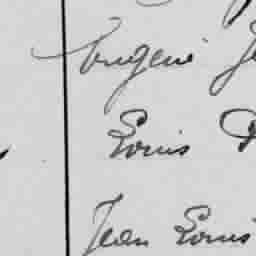 Eugène
Louis
Jean Louis